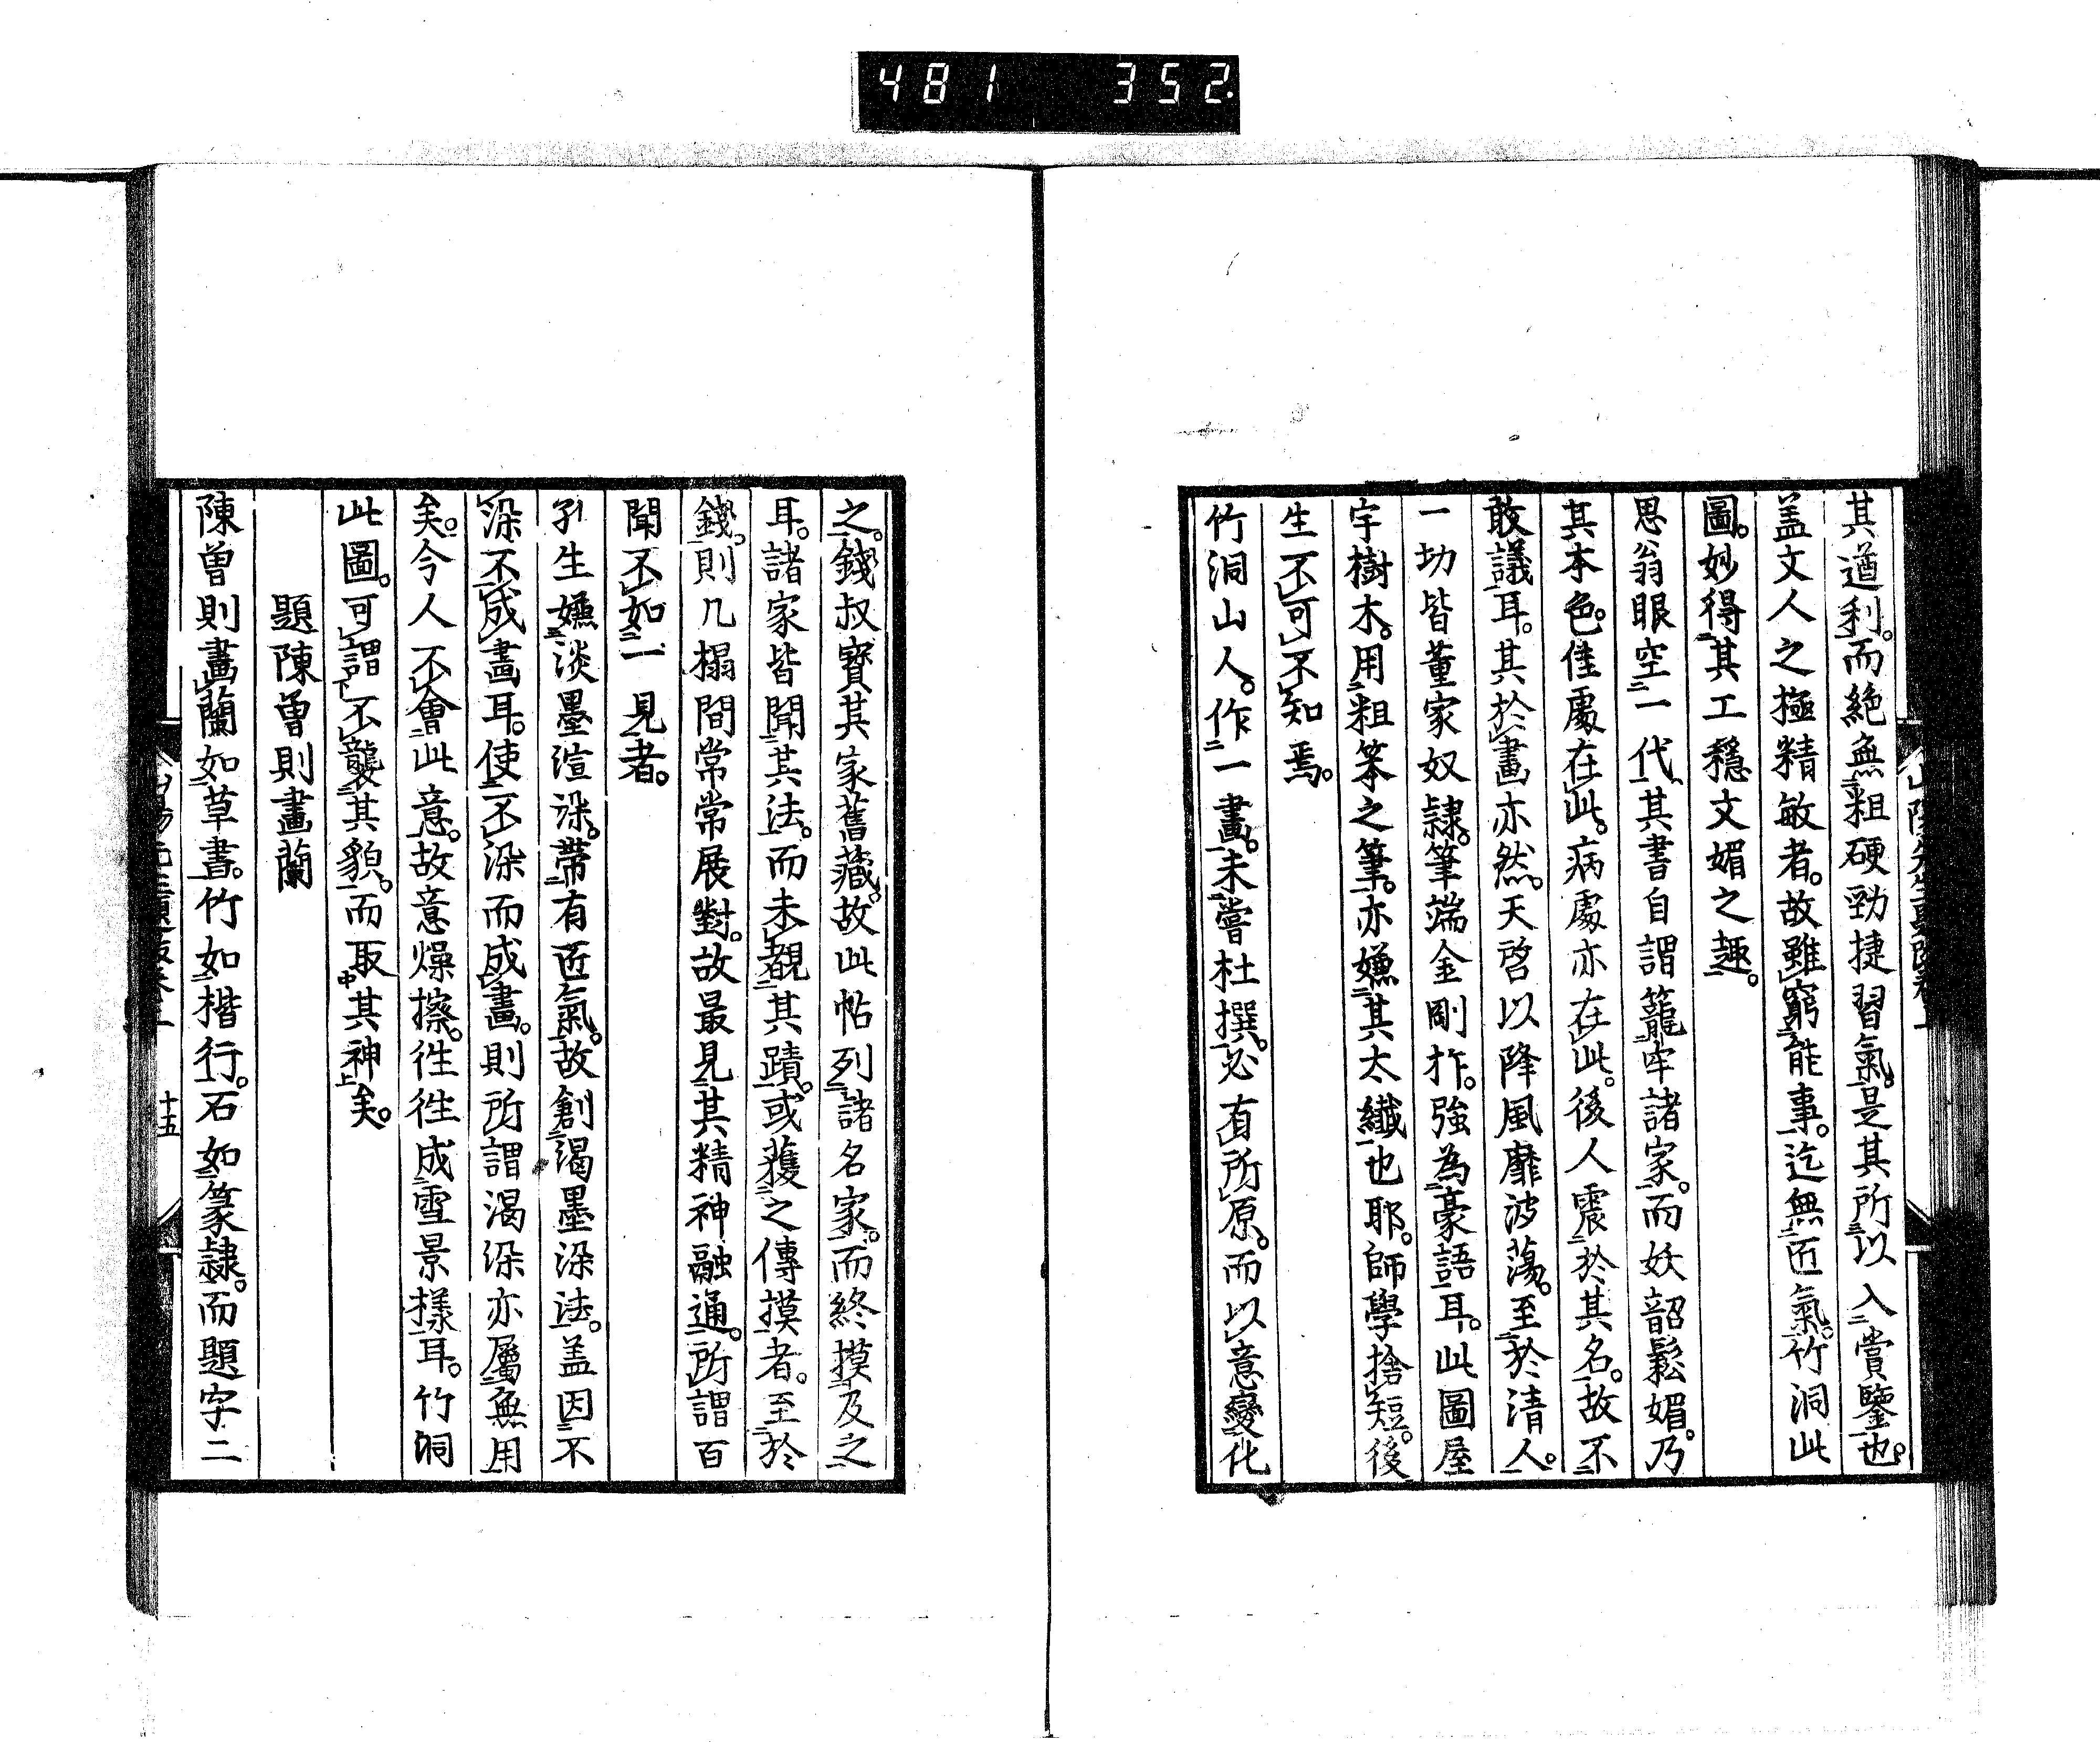 481 352
其遒利。而絶無粗硬勁捷習氣。是其所以入賞鑒也。
盖文人之極精敏者。故雖窮能事。迄無匠氣。竹洞此
圖。妙得其工穩文媚之趣。
思翁眼空一代、其書自謂籠牢諸家。而妖韶鬆媚。乃
其本色。佳處在此。病處亦在此。後人震於其名。故不
敢議耳。其於畫亦然。天啓以降風靡波蕩。至於清人。
一切皆董家奴隷。筆端金剛杵。強為豪語耳。此圖屋
宇樹木。用粗笨之筆。亦嫌其太纖也耶。師學捨短。後
生不可不知焉。
竹洞山人。作一畫。未嘗杜撰。必有所原。而以意變化
之。錢叔寶其家舊藏。故此帖列諸名家。而終摸及之
耳。諸家皆聞其法。而未覩其蹟。或獲之傳摸者。至於
錢。則几榻間常常展對。故最見其精神融通。所謂百
聞不如一見者。
孔生嫌淡墨渲染。帶有匠氣。故創渴墨染法。盖因不
染不成畫耳。使不染而成畫。則所謂渴染亦屬無用
矣。今人不會此意。故意燥擦。徃徃成雪景樣耳。竹洞
此圖。可謂不襲其貌。而取其神矣。
題陳曽則畫蘭
陳曽則畫蘭如草書。竹如楷行。石如篆隷。而題字二
十五